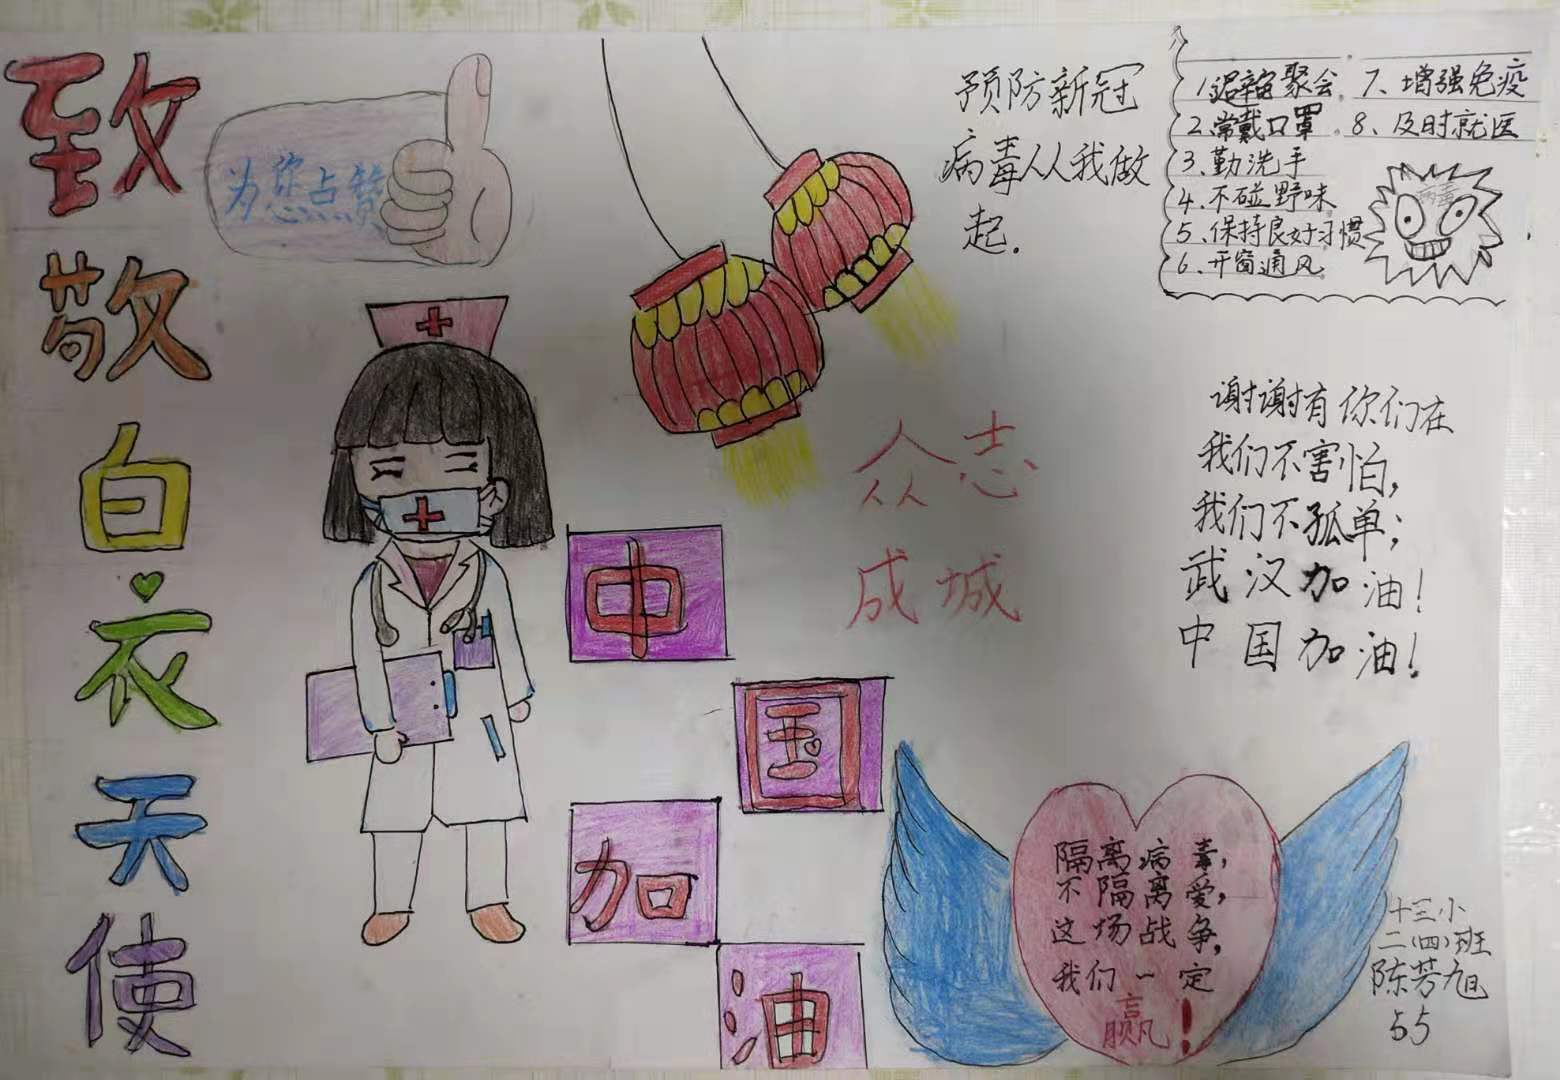 致
敬
白
衣
天
使
为你点赞
预防新冠
病毒从我做
起.
1.避宙聚会
2.常戴口罩
3.勤洗手
4.不碰野味
5.保持良好习惯
6.开窗通风
7、增强免疫
8、及时就医
病毒
众志
成城
谢谢有你们在
我们不害怕,
我们不孤单;
武汉加油!
中国加油!
中
国
加
油
隔离病毒,
不隔离爱,
这场战争,
我们一定
赢!
十三小
二(四)班
陈芳旭
55